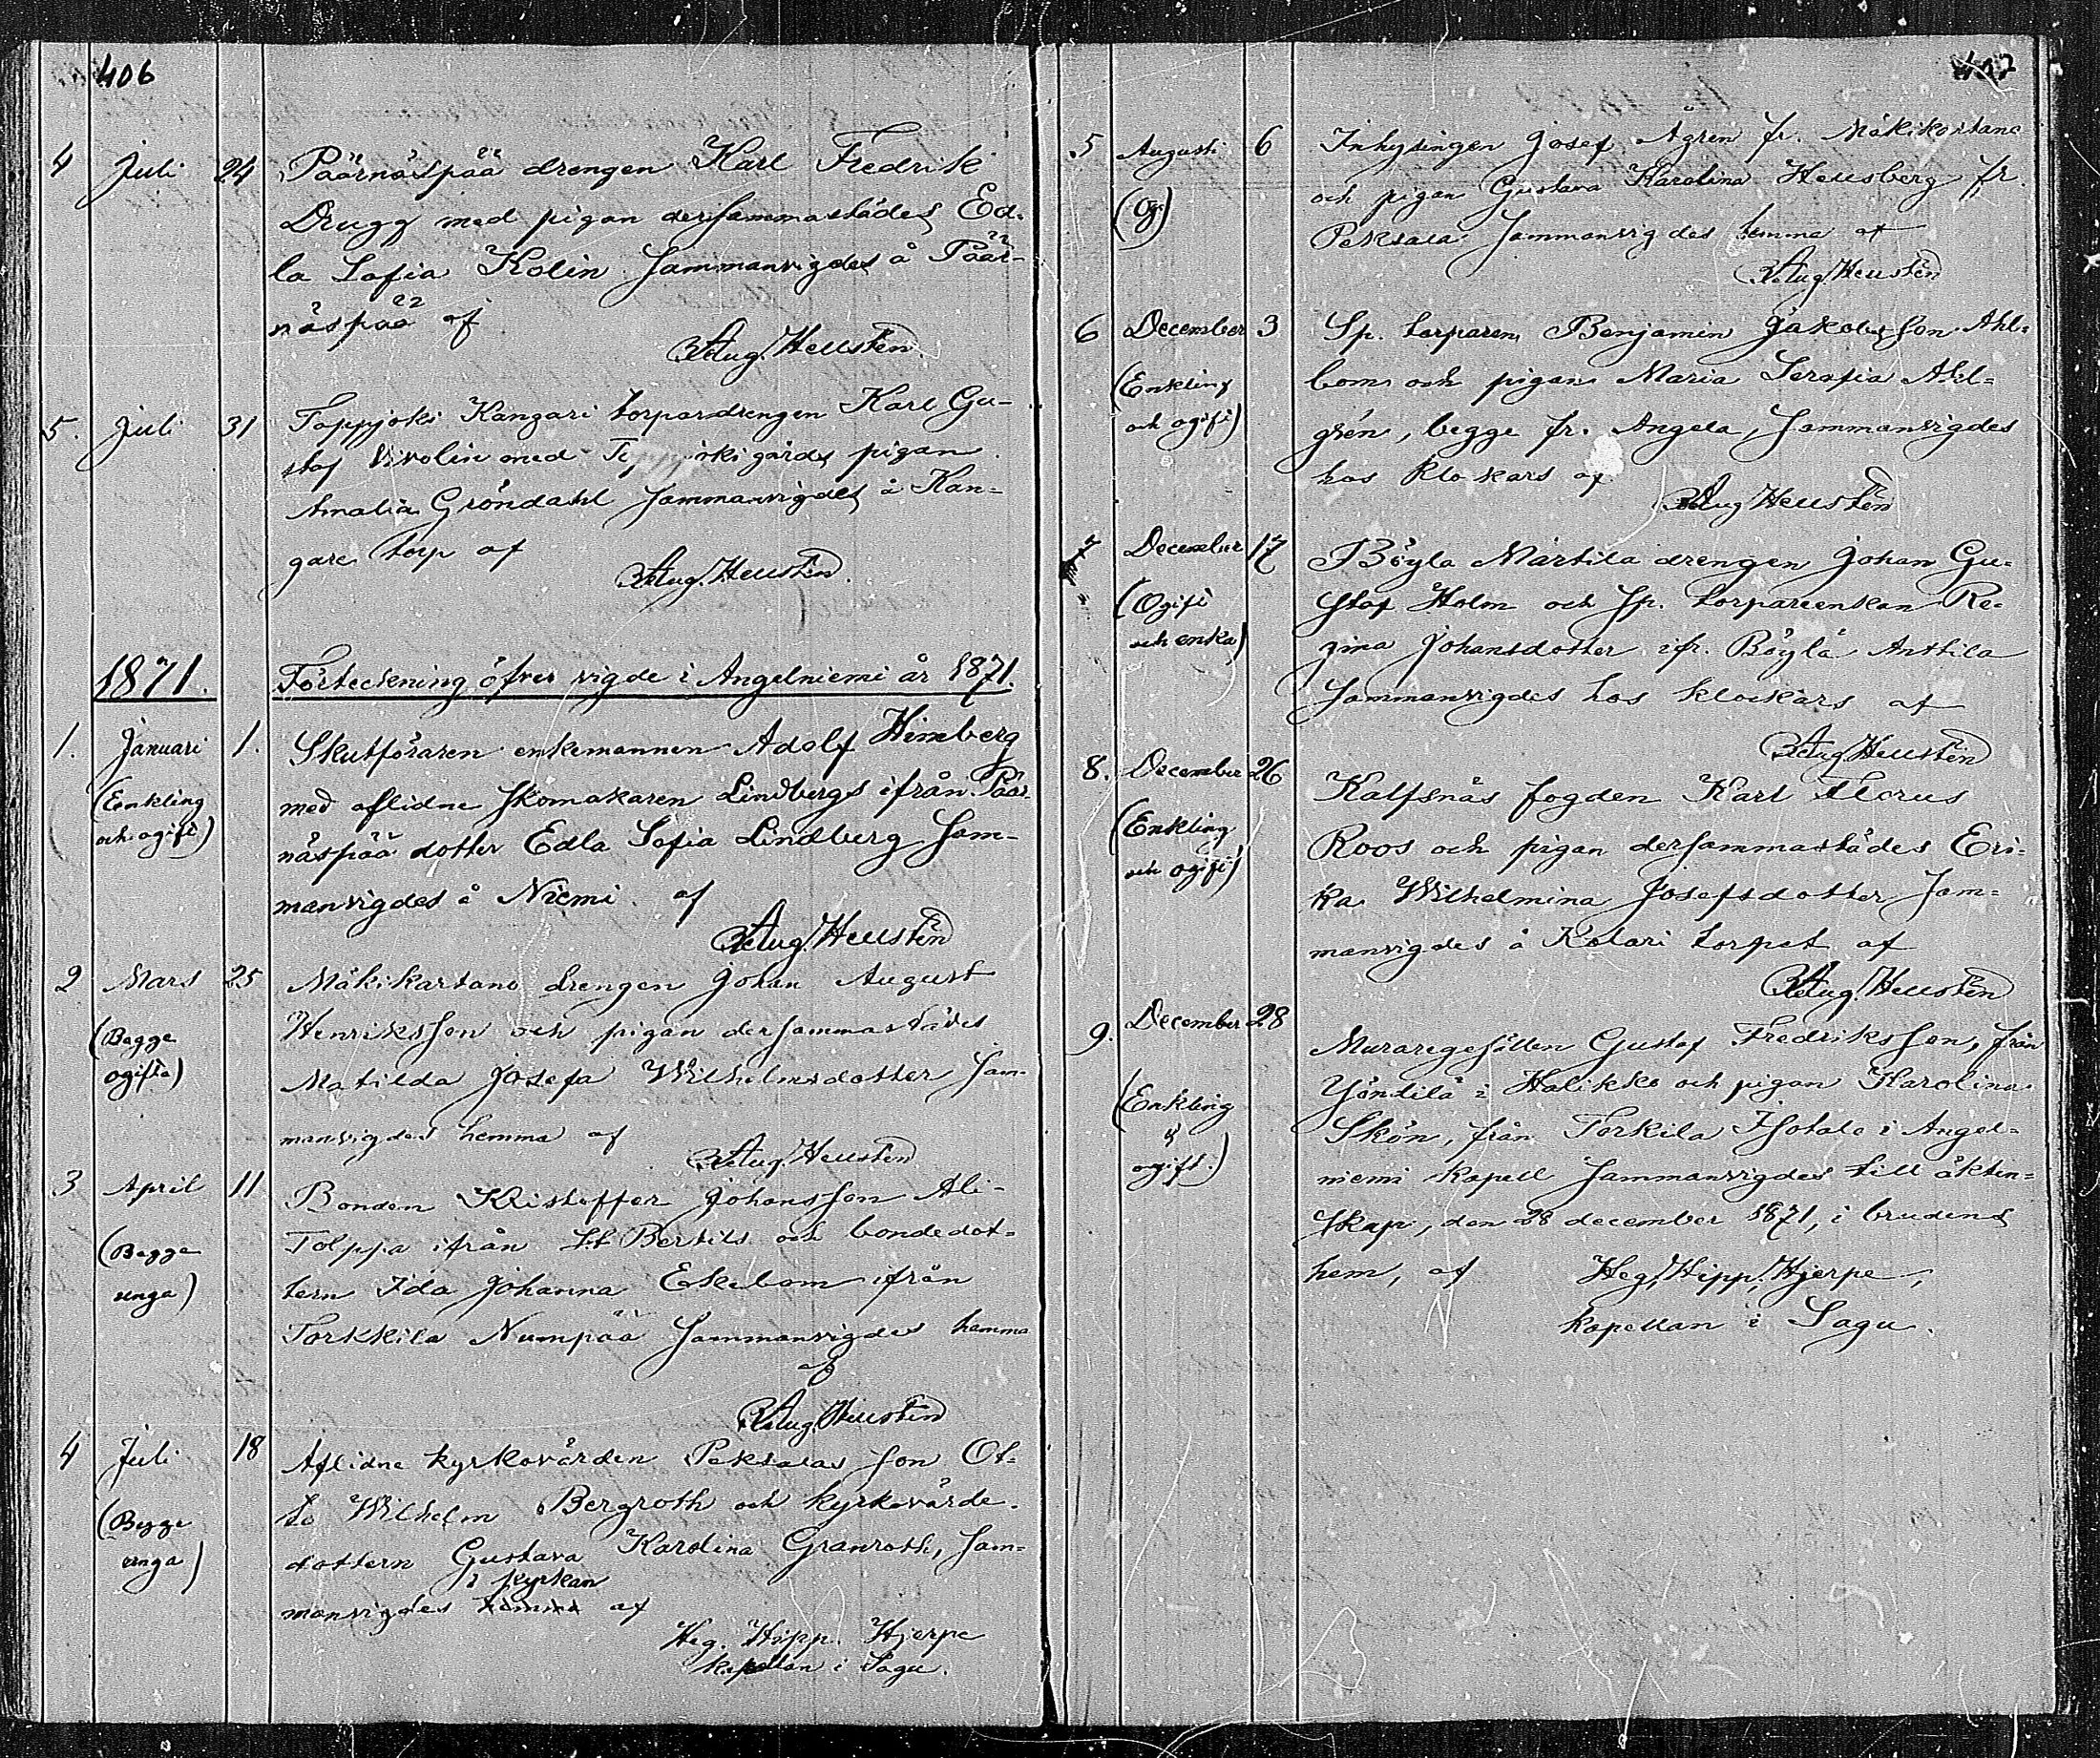 406
4 Juli 24 Päärnäspää drengen Karl Fredrik
Drugg med pigan dersammastädes Ed-
la Sofia Kolin sammanvigdes å Päär-
näspää af
Aug. Hellstén
5. Juli 31 Toppjoki Kangari torpardrengen Karl Gu-
staf Vivolin med gårds pigan
Amalia Gröndahl sammanvigdes å Kan-
gare torp af
Aug. Hellstén.
1871. Förteckning öfver vigde i Angelniemi år 1871.
1. Januari 1. Skutföraren enkemannen Adolf Himberg
(Enkling med aflidne skomakaren Lindbergs ifrån Päär-
och ogift) näspää dotter Edla Sofia Lindberg sam-
manvigdes å Niemi af
Aug. Hellstén
2 Mars 25 Mäkikartano drengen Johan August
(Begge Henriksson och pigan dersammastädes
ogifta) Matilda Josefa Wilhelmsdotter sam-
manvigdes hemma af
Aug. Hellstén
3 April 11 Bonden Kristoffer Johansson Ali-
(Begge Tolppa ifrån St Bertils och bondedot-
unga) tern Ida Johanna Ekebom ifrån
Torkkila Numpää sammanvigdes hemma
af
Aug. Hellstén
4 Juli 18 Aflidne kyrkovärden Peksalas son Ot-
(Begge to Wilhelm Bergroth och kyrkovärde-
unga) dottern Gustava Karolina Granroth, sam-
i kyrkan
manvigdes hemma af
Heg. Hipp. Hjerpe
kapellan i Sagu.
407
5 Augusti 6 Inhysingen Josef Ågren fr. Mäkikartano
(Og.) och pigan Gustava Karolina Heusberg fr.
Peksala sammanvigdes hemma af
Aug. Hellstén
6 December 3 Sp. torparen Benjamin Jakobsson Ahl-
(Enkling bom och pigan Maria Serafia Ahl-
och ogift) grén, begge fr. Angela, sammanvigdes
hos Klockars af
Aug. Hellstén
7 December 17 Böyla Märtila drengen Johan Gu-
(Ogift staf Holm och sp. torpareenkan Re-
och enka) gina Johansdotter ifr. Böylä Anttila
sammanvigdes hos klockars af
Aug. Hellstén
8. December 26 Kalfsnäs fogden Karl Florus
(Enkling Roos och pigan dersammastädes Eri-
och ogift) ka Wilhelmina Josefsdotter sam-
manvigdes å Kolari torpet af
Aug. Hellstén
9. December 28 Muraregesällen Gustaf Fredriksson, från
(Enkling Yöntilä i Halikko och pigan Karolina
& Skön, från Torkila Isotalo i Angel-
ogift.) niemi kapell sammanvigdes till äkten-
skap, den 28 december 1871, i brudens
hem, af Heg. Hipp. Hjerpe,
kapellan i Sagu.